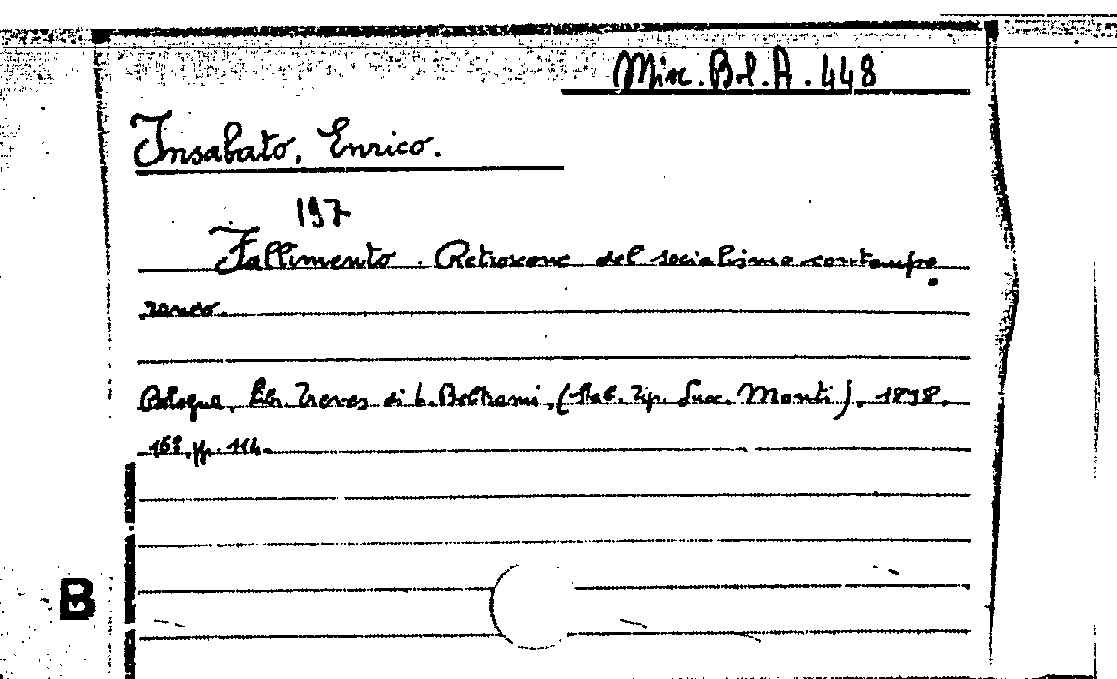 Misc. Bol. A. 448
Insabato, Enrico.
197
Fallimento. Retroscene del socialismo contempo
raneo.
Bologna, Libr. Treves di L. Beltrami, (Stab. Tip. Succ. Monti), 1898.
16º, pp. 114.
B